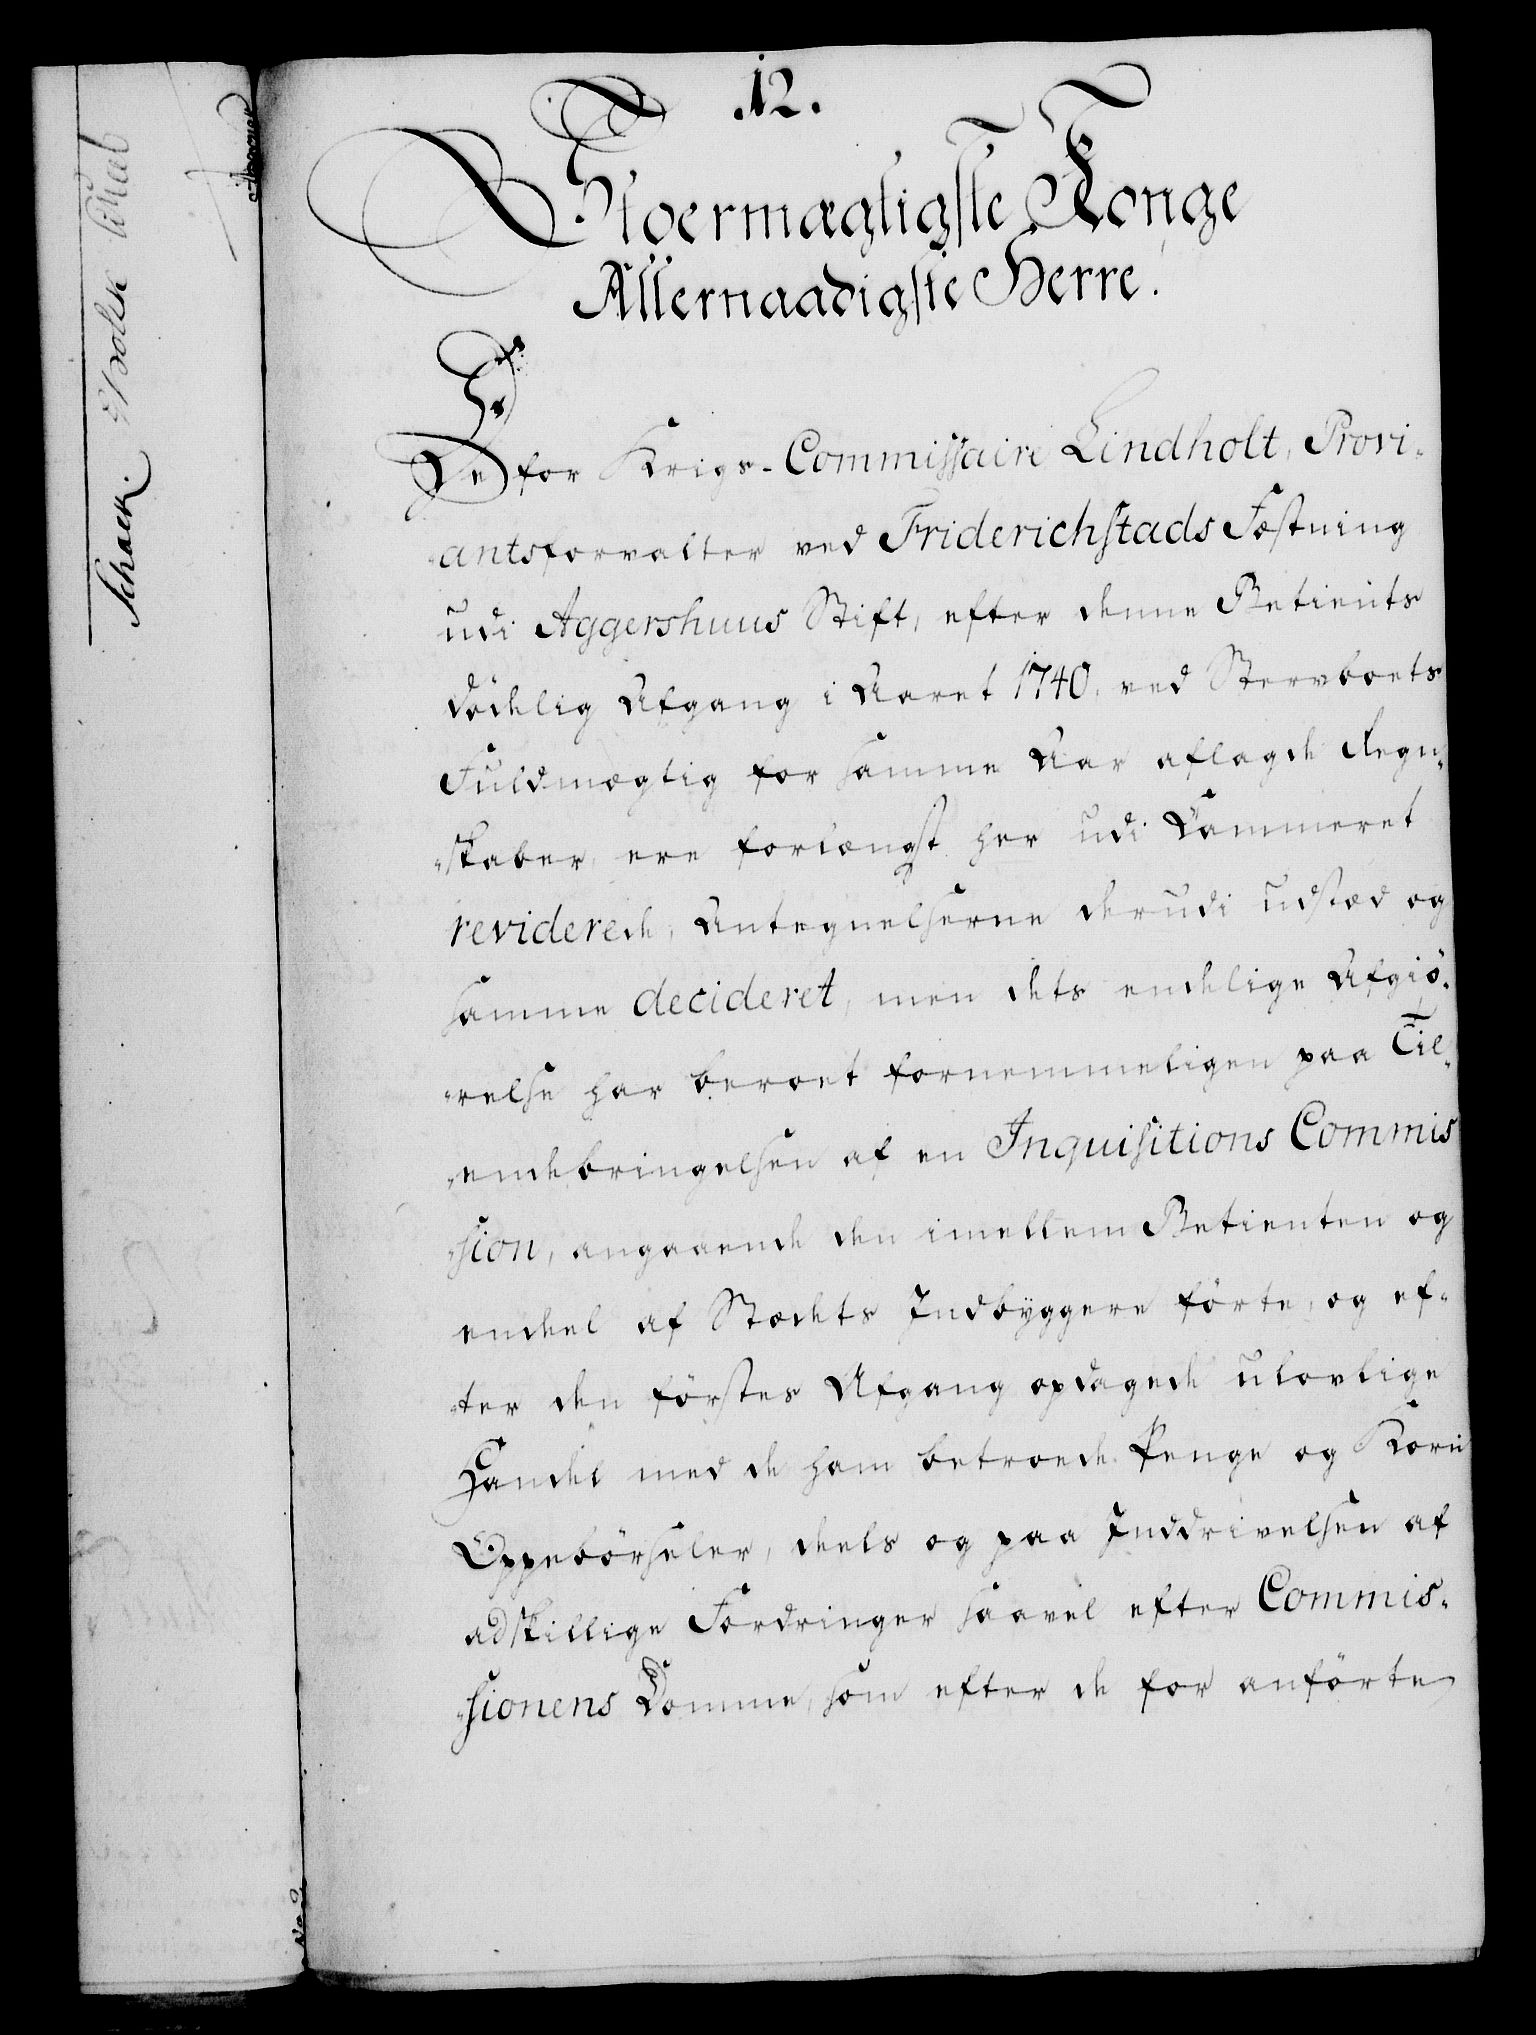 .12.
Stoermægtigste Konge
Allernaadigste Herre.
De for Krigs-Commissaire Lindholt, Provi-
antsforvalter ved Friderichstads Fæstning
udi Aggershuus Stift, efter denne Betients
dödelig Afgang i Aaret 1740, ved Stervboets
Fuldmægtig for samme Aar aflagde Regn-
skaber, ere forlængst her udi Cammeret
reviderede, Antegnelserne derudi udstæd og
samme decideret, men dets endelige Afgiö-
relse har beroet fornemmeligen paa Til-
endebringelsen af en Inquisitions Commis
sion, angaaende den imellem Betienten og
endeel af Stædets Indbyggere förte, og ef-
ter den förstes Afgang opdagede ulovlige
Handel med de ham betroede Penge og Korn
Oppebörseler, deels og paa Inddrivelsen af
adskillige Fordringer saavel efter Commis-
sionens Domme, som efter de for anförte
Schack.